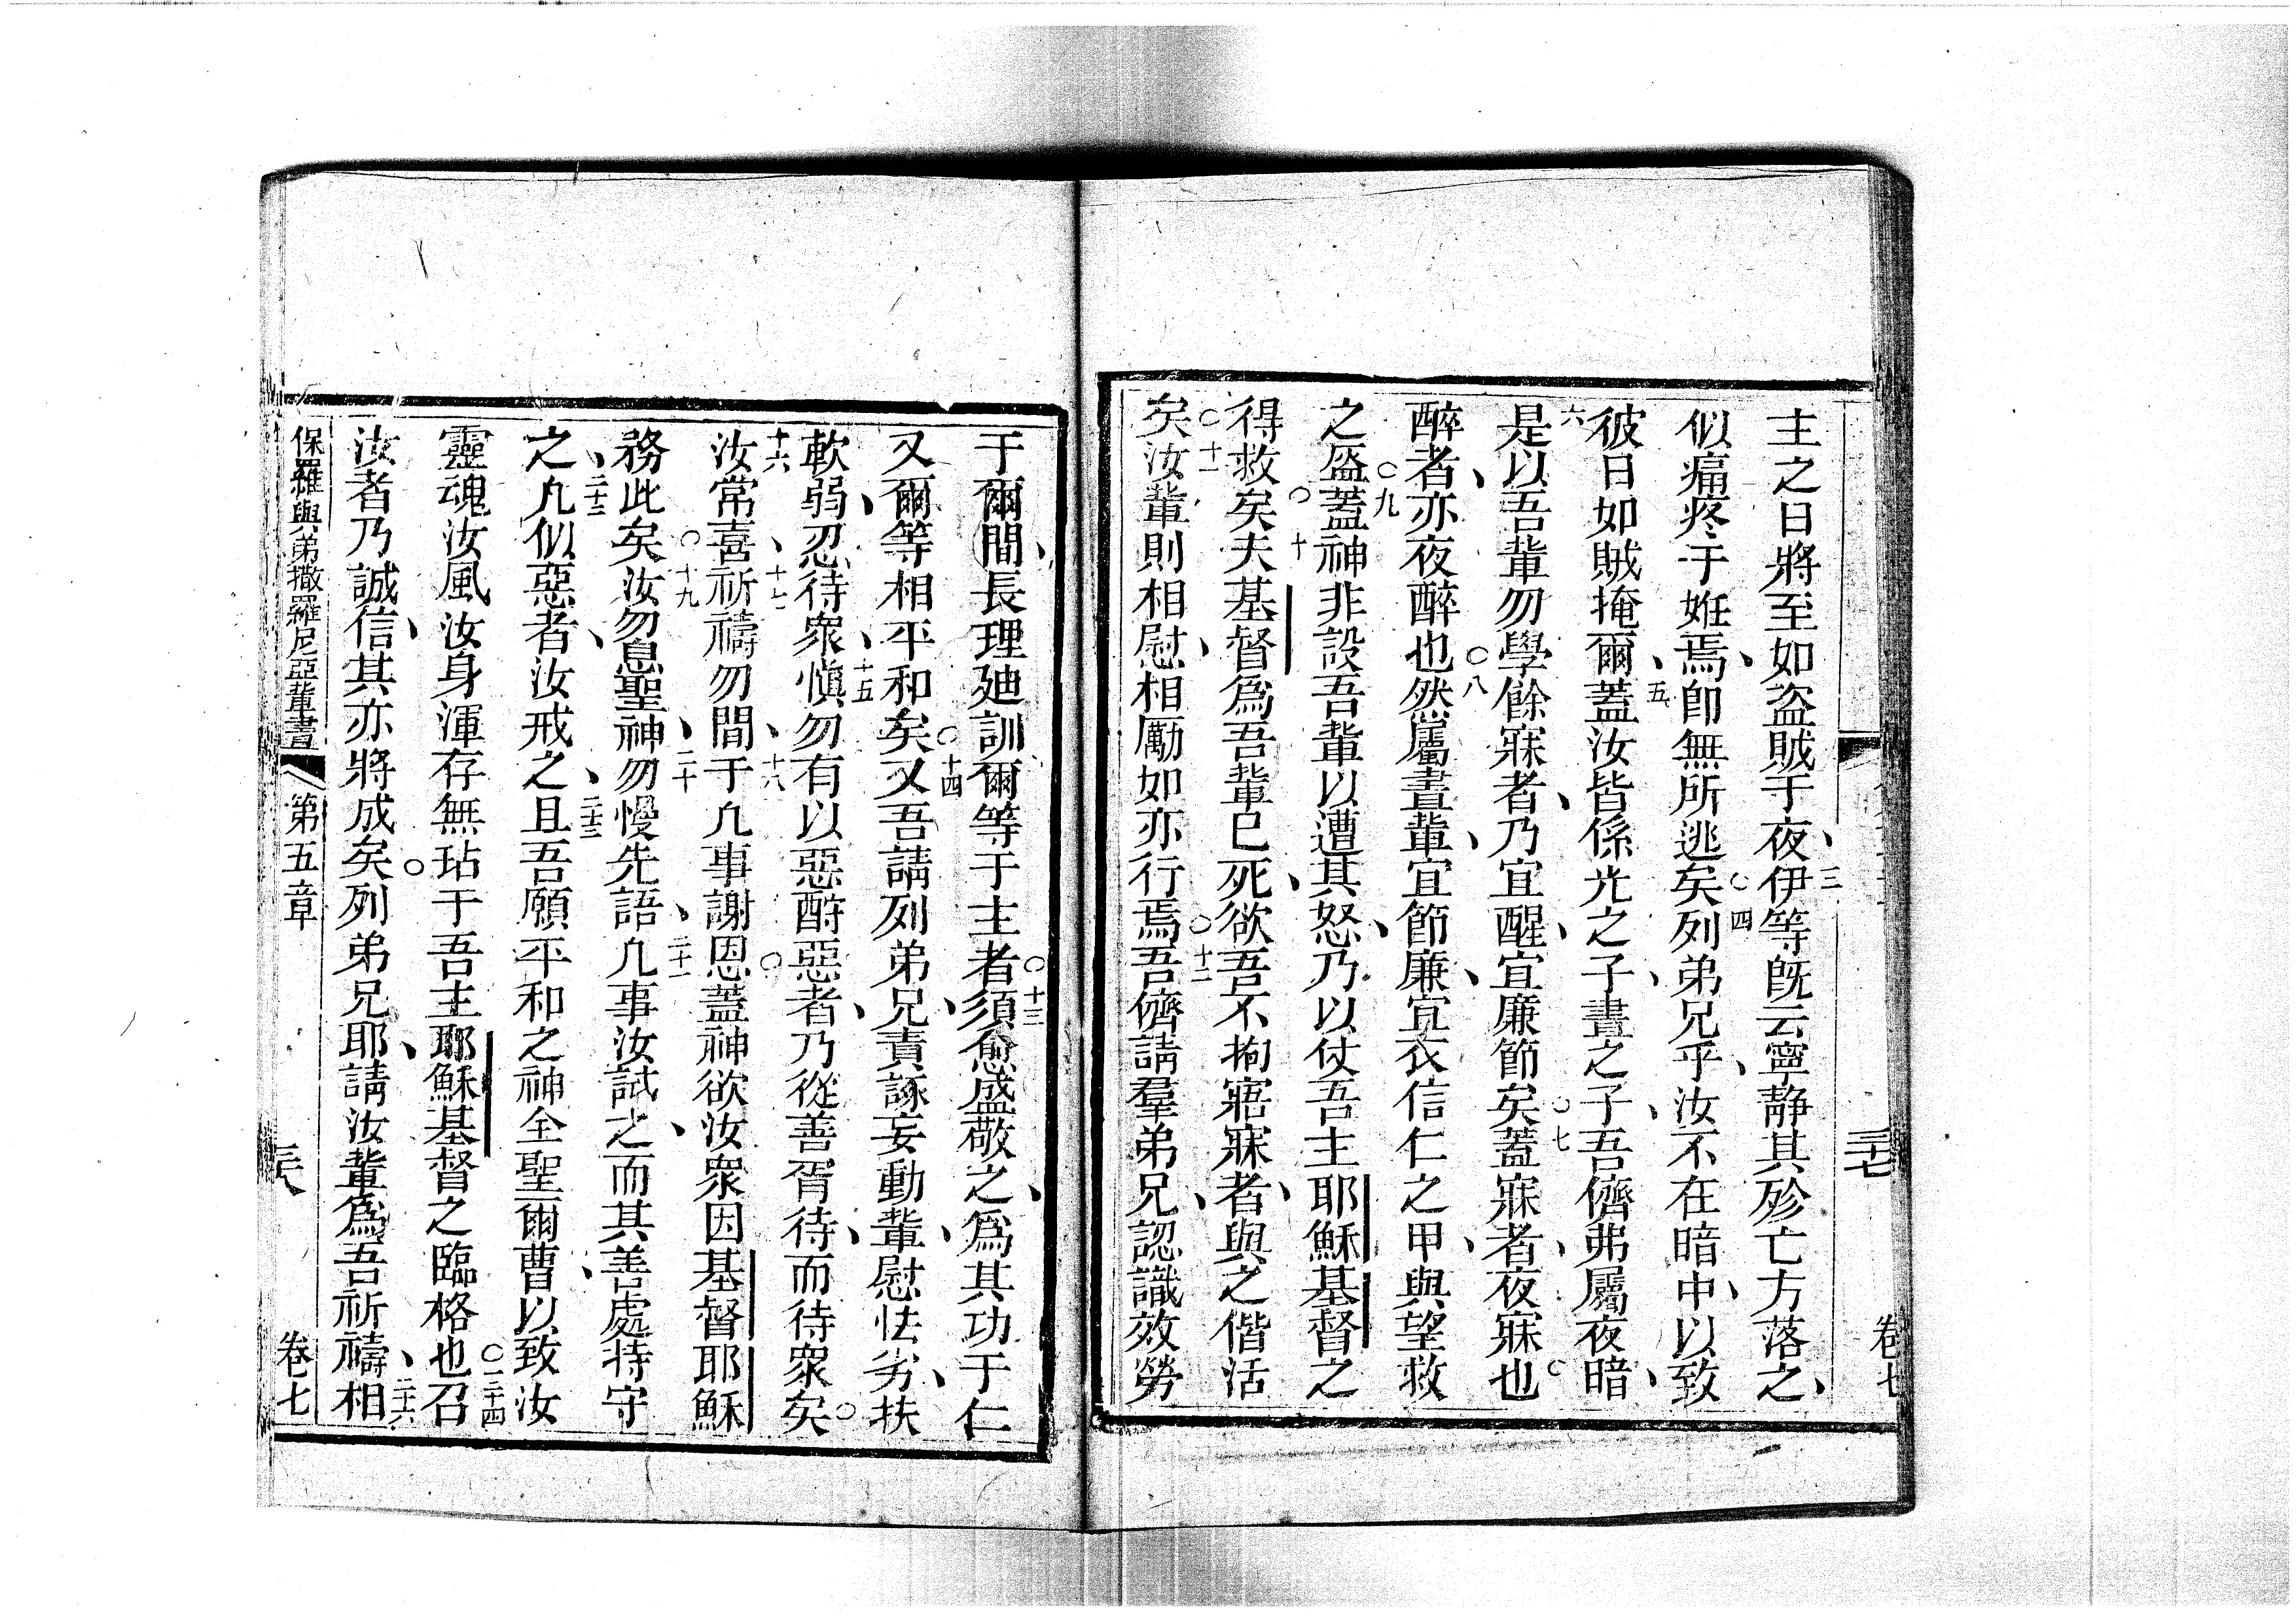 主之日將至如盜賊于夜、三伊等旣云寧静其殄亡方落之、
似痛疼于姙焉、卽無所逃矣○四列弟兄乎、汝不在暗中、以致
彼日如賊掩爾、五蓋汝皆係光之子、晝之子、吾儕弗屬夜暗、
六是以吾輩勿學餘寐者、乃宜醒、宜廉節矣○七蓋寐者、夜寐也○
醉者、亦夜醉也○八然屬晝輩、宜節廉、宜衣信仁之甲、與望救
之盔○九蓋神非設吾輩以遭其怒、乃以仗吾主耶穌基督之
得救矣○十夫基督爲吾輩已死、欲吾不拘寤寐者、與之偕活
矣○十一汝輩則相慰、相勵如亦行焉○十二吾儕請羣弟兄、認識效勞
于爾間、長理廸訓爾等于主者○十三須愈盛敬之、爲其功于仁
又爾等相平和矣○十四又吾請列弟兄、責諑妄動輩、慰怯劣、扶
軟弱、忍待衆、十五愼勿有以惡酧惡者、乃從善胥待、而待衆矣○
十六汝常喜、十七祈禱勿間、十八于凢事謝恩○蓋神欲汝衆因基督耶穌
務此矣○十九汝勿息聖神、二十勿慢先語、二十一凢事汝試之、而其善處持守
之、二十二凢似惡者、汝戒之、二十三且吾願平和之神全聖爾曹、以致汝
靈魂汝風汝身渾存無玷于吾主耶穌基督之臨格也○二十四召
汝者乃誠信、其亦將成矣○列弟兄耶、請汝輩爲吾祈禱、二十六相
保羅與弟撒羅尼亞輩書 第五章 卷七
卷七